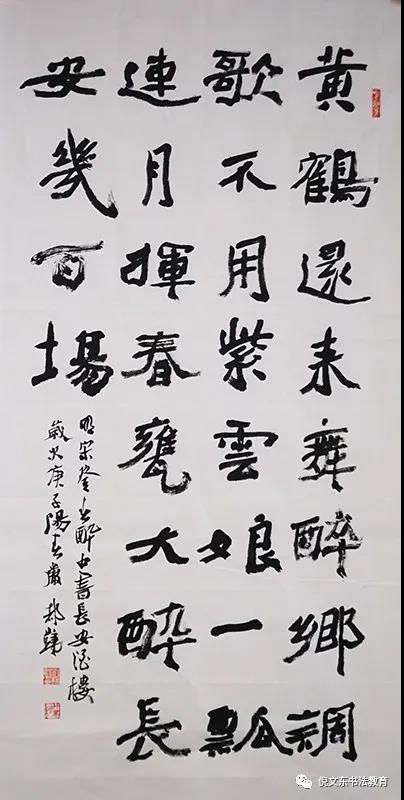 黄鶴還来舞醉鄉調
歌不用紫雲娘一瓢
連月揮春甕大醉長
安幾百場
明宋登春醉中書長安酒樓
歲次庚子陽春
倪文东书法教育